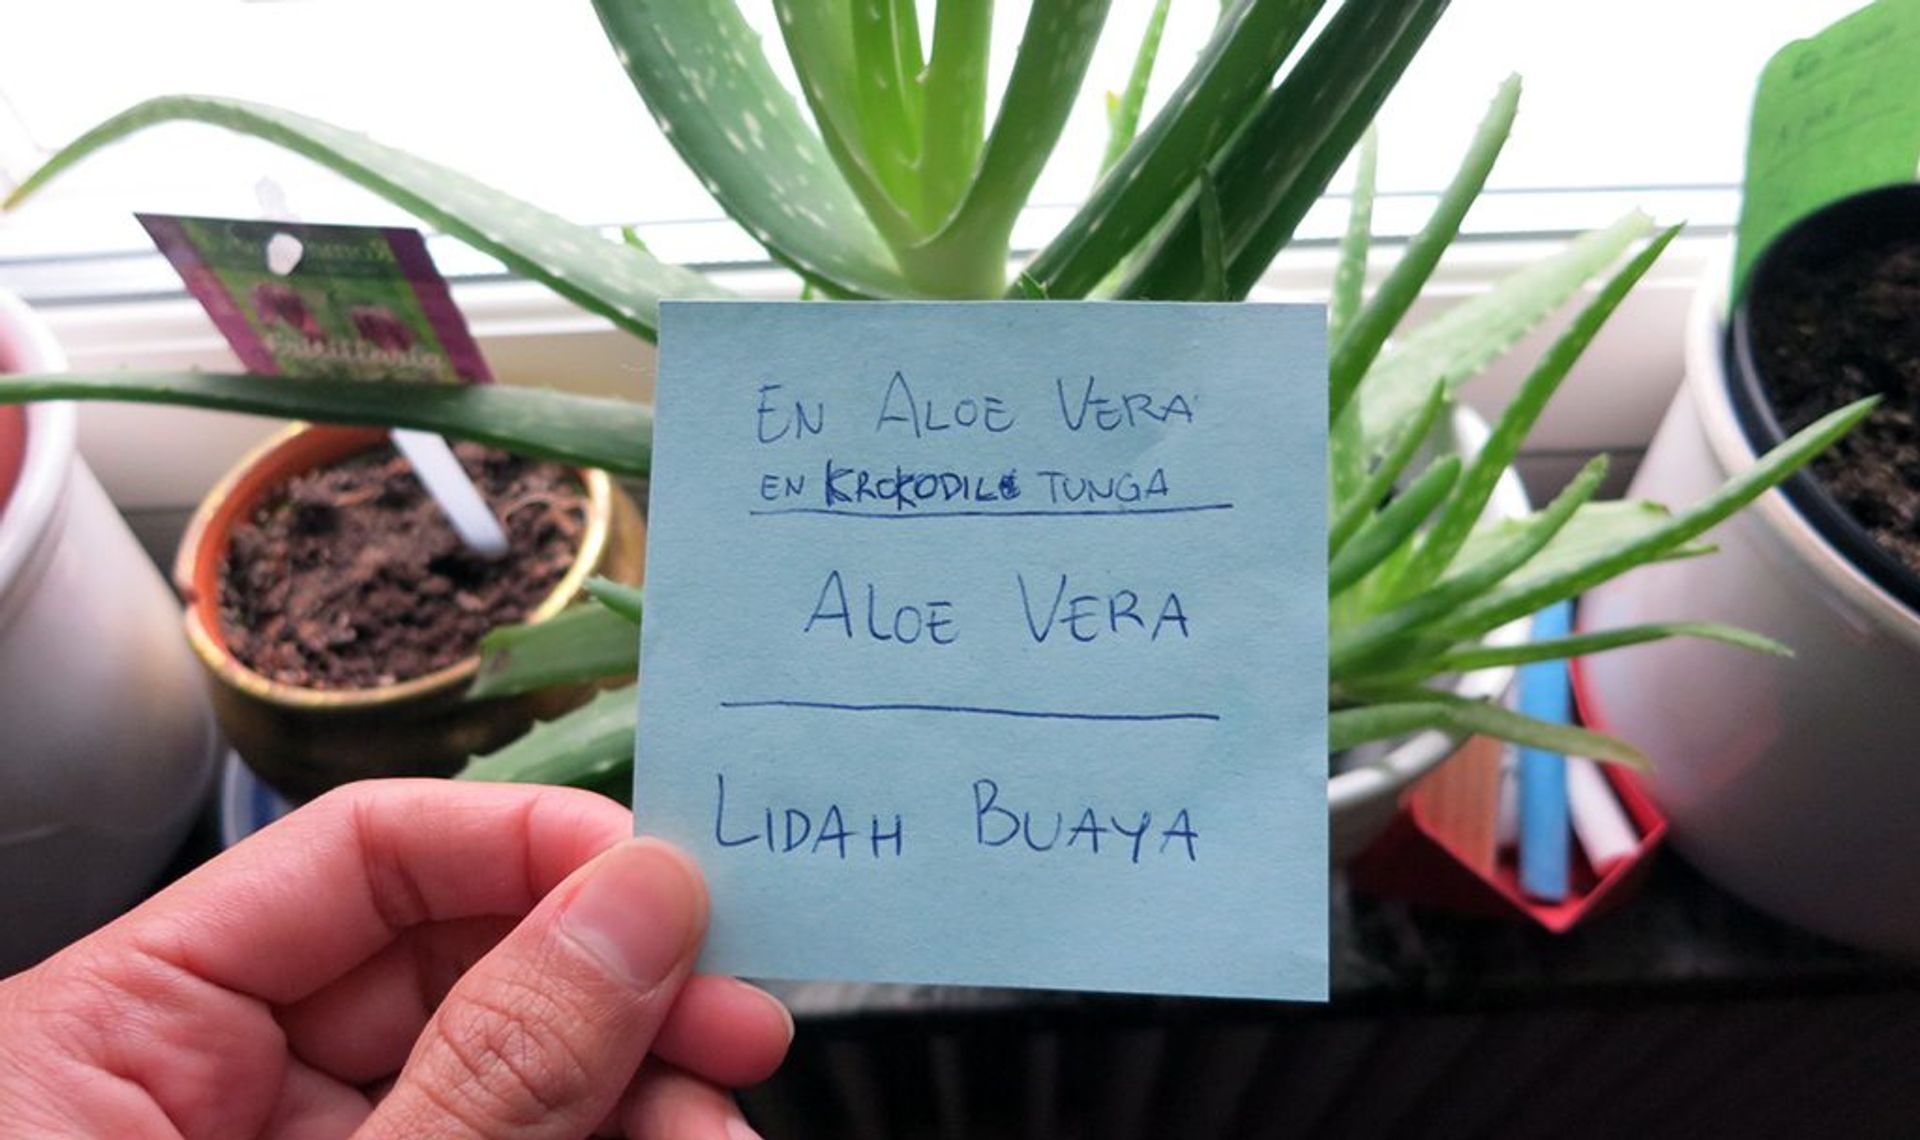 EN ALOE VERA
EN KROKODILE TUNGA
ALOE VERA
LIDAH BUAYA
Fritillaria